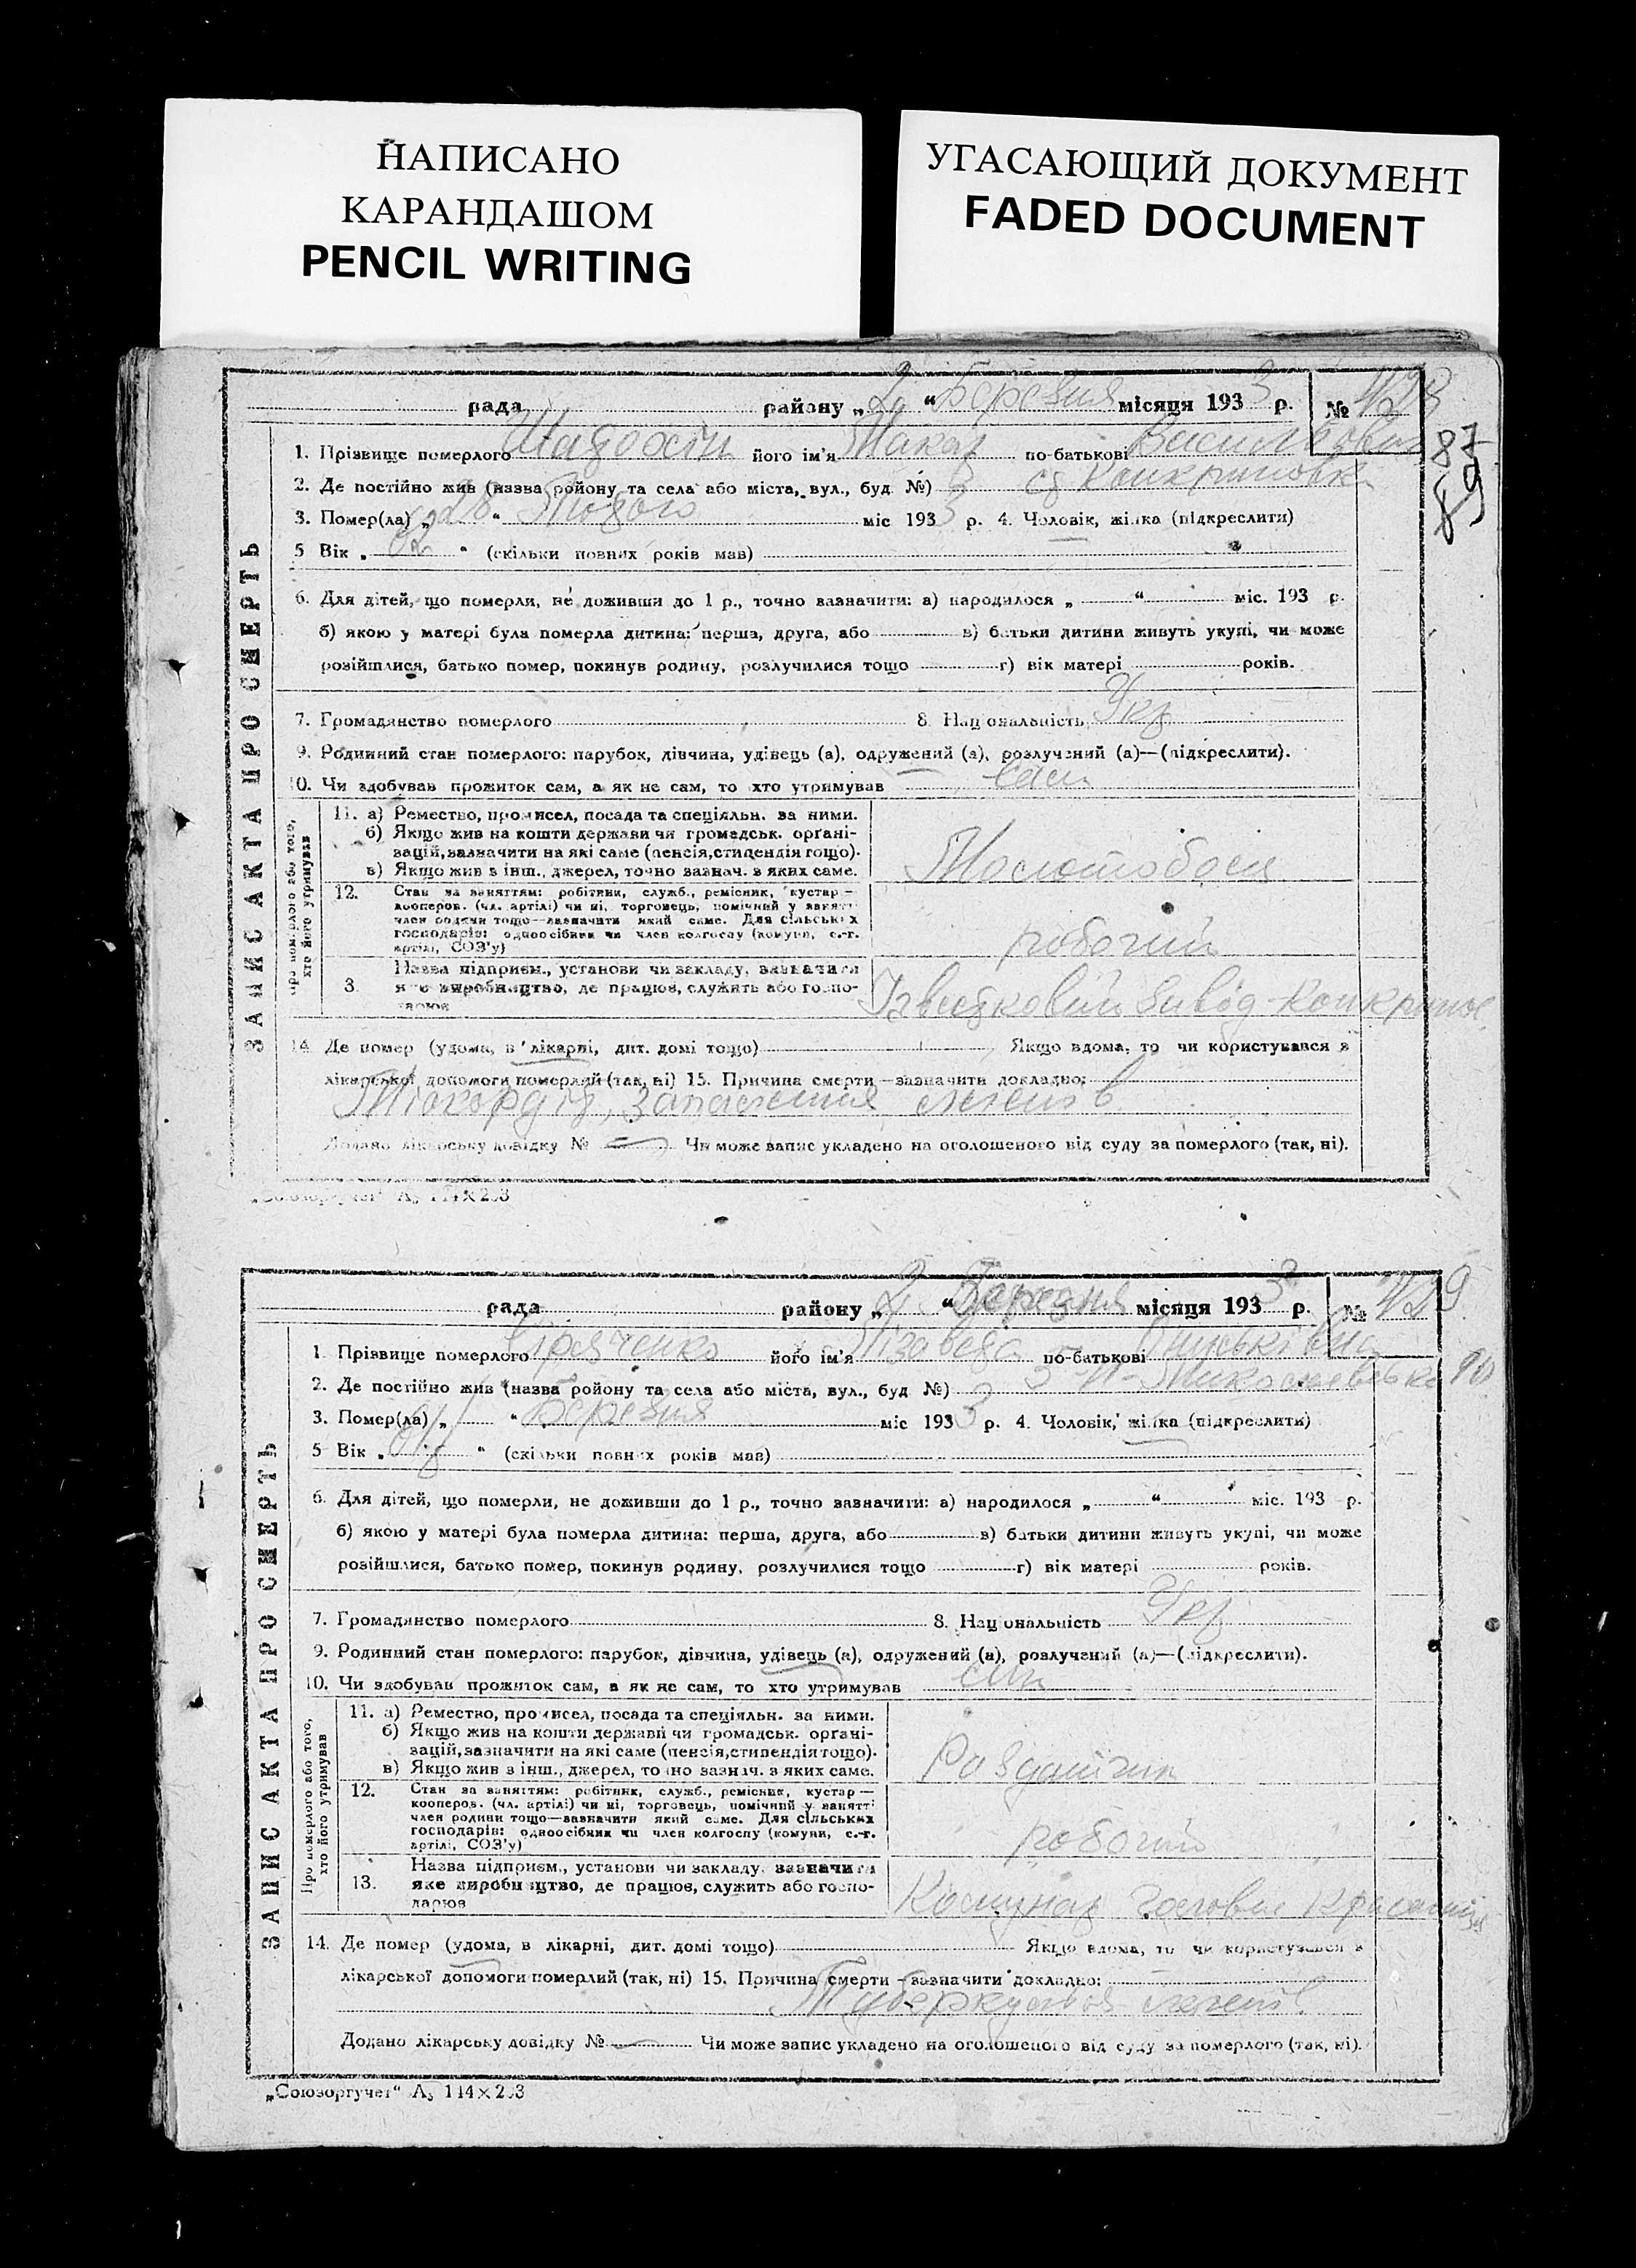 НАПИСАНО
КАРАНДАШОМ
PENCIL WRITING
УГАСАЮЩИЙ ДОКУМЕНТ
FADED DOCUMENT
рада району „2“ Березня місяця 1933 р. №
87
89
ЗАПИС АКТА ПРО СМЕРТЬ
1. Прізвище померлого його ім'я Макар по-батькові Васильович
2. Де постійно жив (назва району та села або міста, вул., буд №)
3. Помер(ла) „28“ Лютого міс 1933 р. 4. Чоловік, жінка (підкреслити)
5 Вік „62“ (скільки повних років мав)
6. Для дітей, що померли, не доживши до 1 р., точно зазначити: а) народилося „ “ міс. 193 р.
б) якою у матері була померла дитина: перша, друга, або в) батьки дитини живуть укупі, чи може
розійшлися, батько помер, покинув родину, розлучилися тощо г) вік матері років.
7. Громадянство померлого 8. Національність Укр
9. Родинний стан померлого: парубок, дівчина, удівець (а), одружений (а), розлучений (а)—(підкреслити).
10. Чи здобував прожиток сам, а як не сам, то хто утримував сам
Про померлого або того,
хто його утримував
11. а) Ремество, промисел, посада та спеціяльн. за ними.
б) Якщо жив на кошти держави чи громадськ. органі-
зацій, зазначити на які саме (пенсія, стипендія тощо).
в) Якщо жив з інш., джерел, точно зазнач. з яких саме.
Молотобоєц
12. Стан за заняттям: робітник, служб., ремісник, кустар —
кооперов. (чл. артілі) чи ні, торговець, помічний у занятті
член родини тощо—зазначити який саме. Для сільських
господарів: одноосібник чи член колгоспу (комуни, с.-г.
артілі, СОЗ'у)
робочий
13. Назва підприєм., установи чи закладу, зазначити
яке виробництво, де працює, служить або госпо-
дарює
завод
14. Де помер (удома, в лікарні, дит. домі тощо) Якщо вдома, то чи користувався з
лікарської допомоги померлий (так, ні) 15. Причина смерти—зазначити докладно:
Міокордіт, запалення легенів
Додано лікарську довідку № Чи може запис укладено на оголошеного від суду за померлого (так, ні).
„Союзоргучет“ А₅ 144×203
рада району „2“ Березня місяця 1933 р. № 429
90
ЗАПИС АКТА ПРО СМЕРТЬ
1. Прізвище померлого його ім'я по-батькові
2. Де постійно жив (назва району та села або міста, вул., буд №)
3. Помер(ла) „1“ Березня міс 1933 р. 4. Чоловік, жінка (підкреслити)
5 Вік „ “ (скільки повних років мав)
6. Для дітей, що померли, не доживши до 1 р., точно зазначити: а) народилося „ “ міс. 193 р.
б) якою у матері була померла дитина: перша, друга, або в) батьки дитини живуть укупі, чи може
розійшлися, батько помер, покинув родину, розлучилися тощо г) вік матері років.
7. Громадянство померлого 8. Національність Укр
9. Родинний стан померлого: парубок, дівчина, удівець (а), одружений (а), розлучений (а)—(підкреслити).
10. Чи здобував прожиток сам, а як не сам, то хто утримував син
Про померлого або того,
хто його утримував
11. а) Ремество, промисел, посада та спеціяльн. за ними.
б) Якщо жив на кошти держави чи громадськ. органі-
зацій, зазначити на які саме (пенсія, стипендія тощо).
в) Якщо жив з інш., джерел, точно зазнач. з яких саме.
12. Стан за заняттям: робітник, служб., ремісник, кустар —
кооперов. (чл. артілі) чи ні, торговець, помічний у занятті
член родини тощо—зазначити який саме. Для сільських
господарів: одноосібник чи член колгоспу (комуни, с.-г.
артілі, СОЗ'у)
робочий
13. Назва підприєм., установи чи закладу, зазначити
яке виробництво, де працює, служить або госпо-
дарює
14. Де помер (удома, в лікарні, дит. домі тощо) Якщо вдома, то чи користувався з
лікарської допомоги померлий (так, ні) 15. Причина смерти—зазначити докладно:
Туберкульоз легенів
Додано лікарську довідку № Чи може запис укладено на оголошеного від суду за померлого (так, ні).
„Союзоргучет“ А₅ 144×203